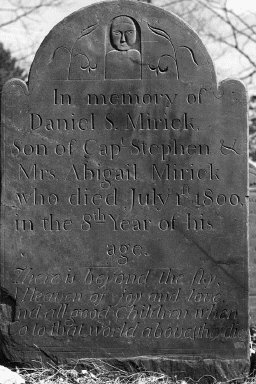 In memory of
Daniel S. Mirick,
Son of Capt Stephen &
Mrs. Abigail Mirick
who died July 1st 1800,
in the 8th Year of his
age.
There is beyond the sky,
A Heaven of joy and love,
And all good Children when they die
Go to that world above.